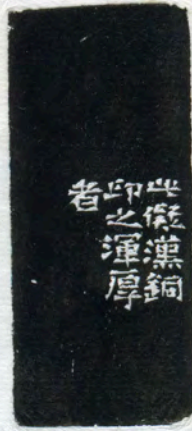 此儗漢銅
印之渾厚
者